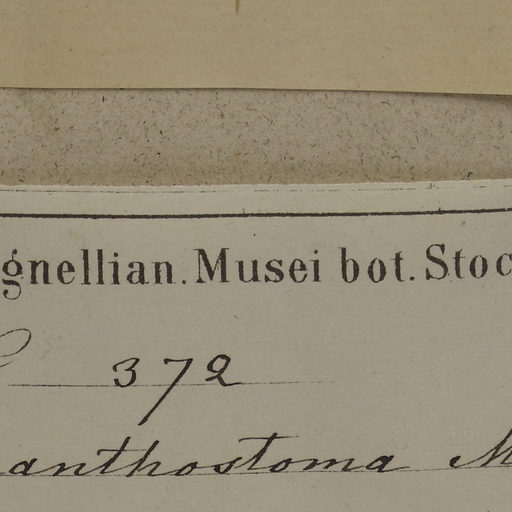 gnellian. Musei bot. Stoc
372
anthostoma M